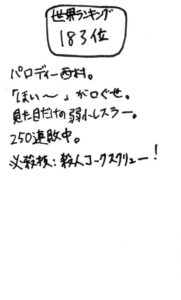 世界ランキング
183位
パロディー西村。
「ほい～」が口ぐせ。
見た目だけの弱小レスラー。
250連敗中。
必殺技：殺人コークスクリュー！